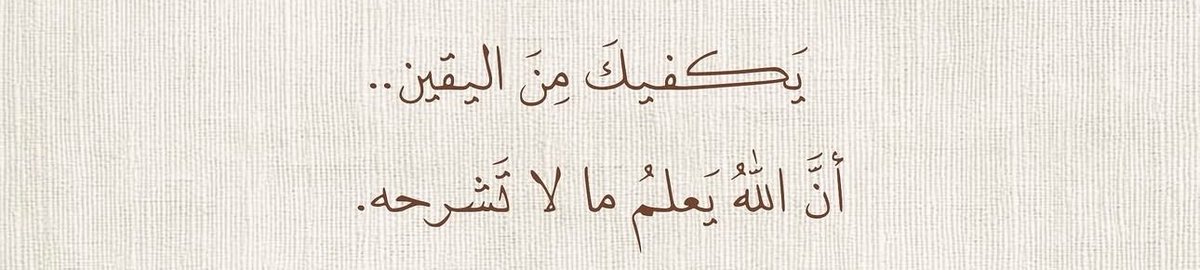 يَكفيكَ مِنَ اليقين..
أنَّ اللهُ يَعلمُ ما لا تَشرحه.